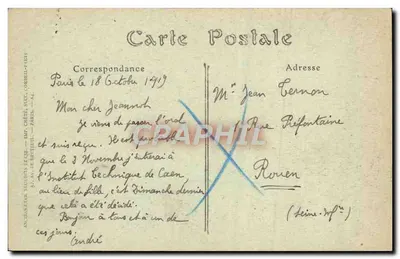 Carte Postale
Correspondance
Adresse
Paris le 18 Octobre 1919
Mon cher Jeannot
Je viens de passer l'oral
et suis reçu. Il est probable
que le 3 Novembre j'entrerai à
l'Institut Technique de Caen,
au lieu de Lille, c'est Dimanche dernier
que cela a été décidé.
Bonjour à tous et à un de
ces jours.
André
Mr Jean Ternon
Rue Préfontaine
Rouen
(Seine-Infre)
CARPHIL